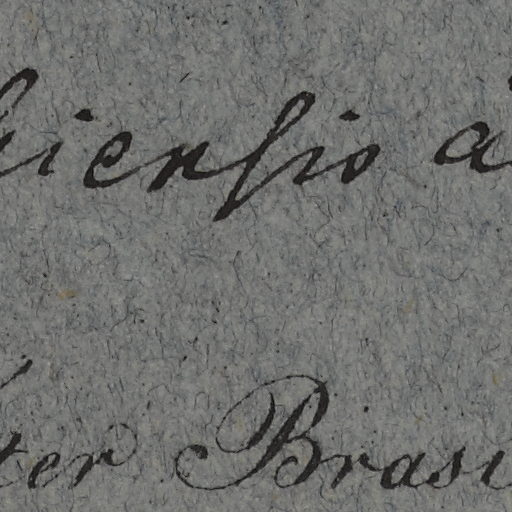 hienſio a
ter Brasi